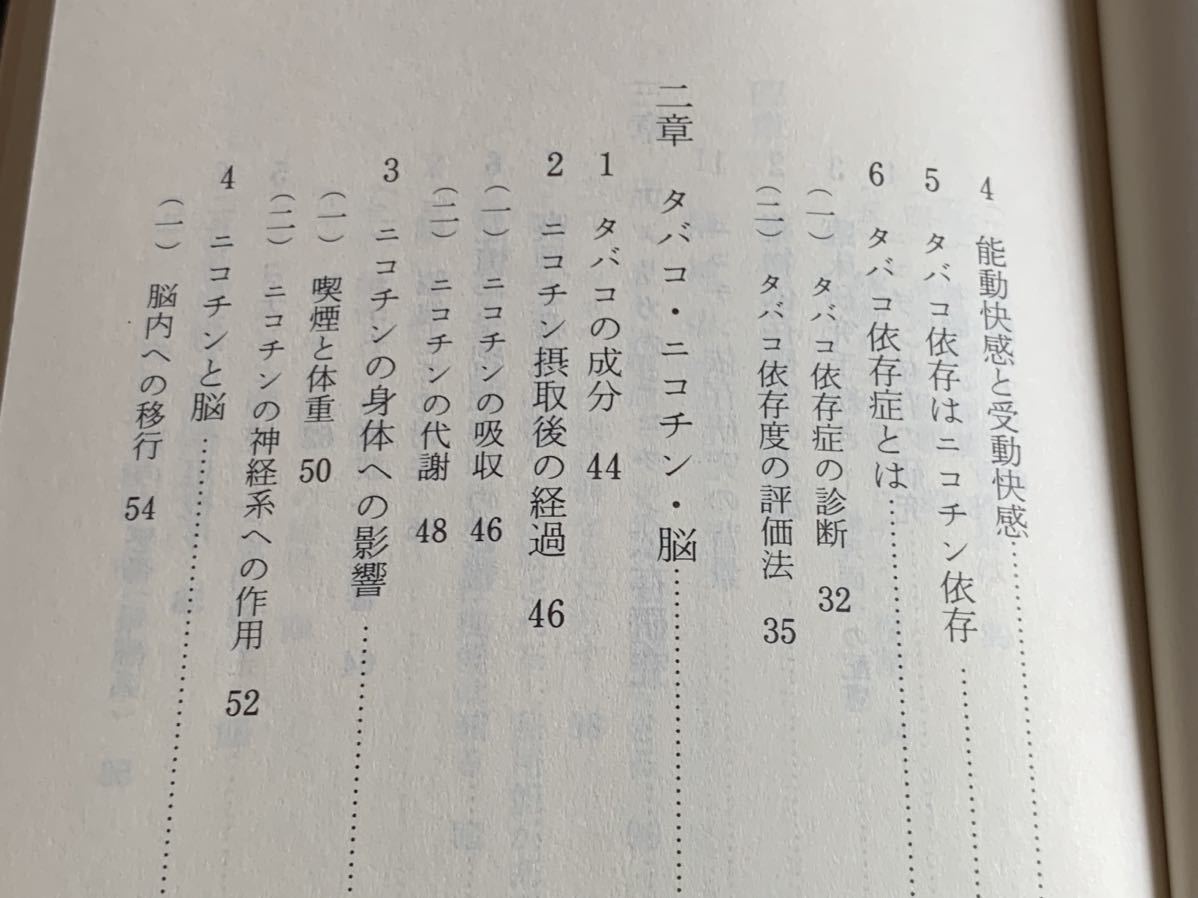 4 能動快感と受動快感……………
5 タバコ依存はニコチン依存……………
6 タバコ依存症とは……………
(一) タバコ依存症の診断 32
(二) タバコ依存度の評価法 35
二章 タバコ・ニコチン・脳……………
1 タバコの成分 44
2 ニコチン摂取後の経過 46
(一) ニコチンの吸収 46
(二) ニコチンの代謝 48
3 ニコチンの身体への影響……………
(一) 喫煙と体重 50
(二) ニコチンの神経系への作用 52
4 ニコチンと脳……………
(一) 脳内への移行 54